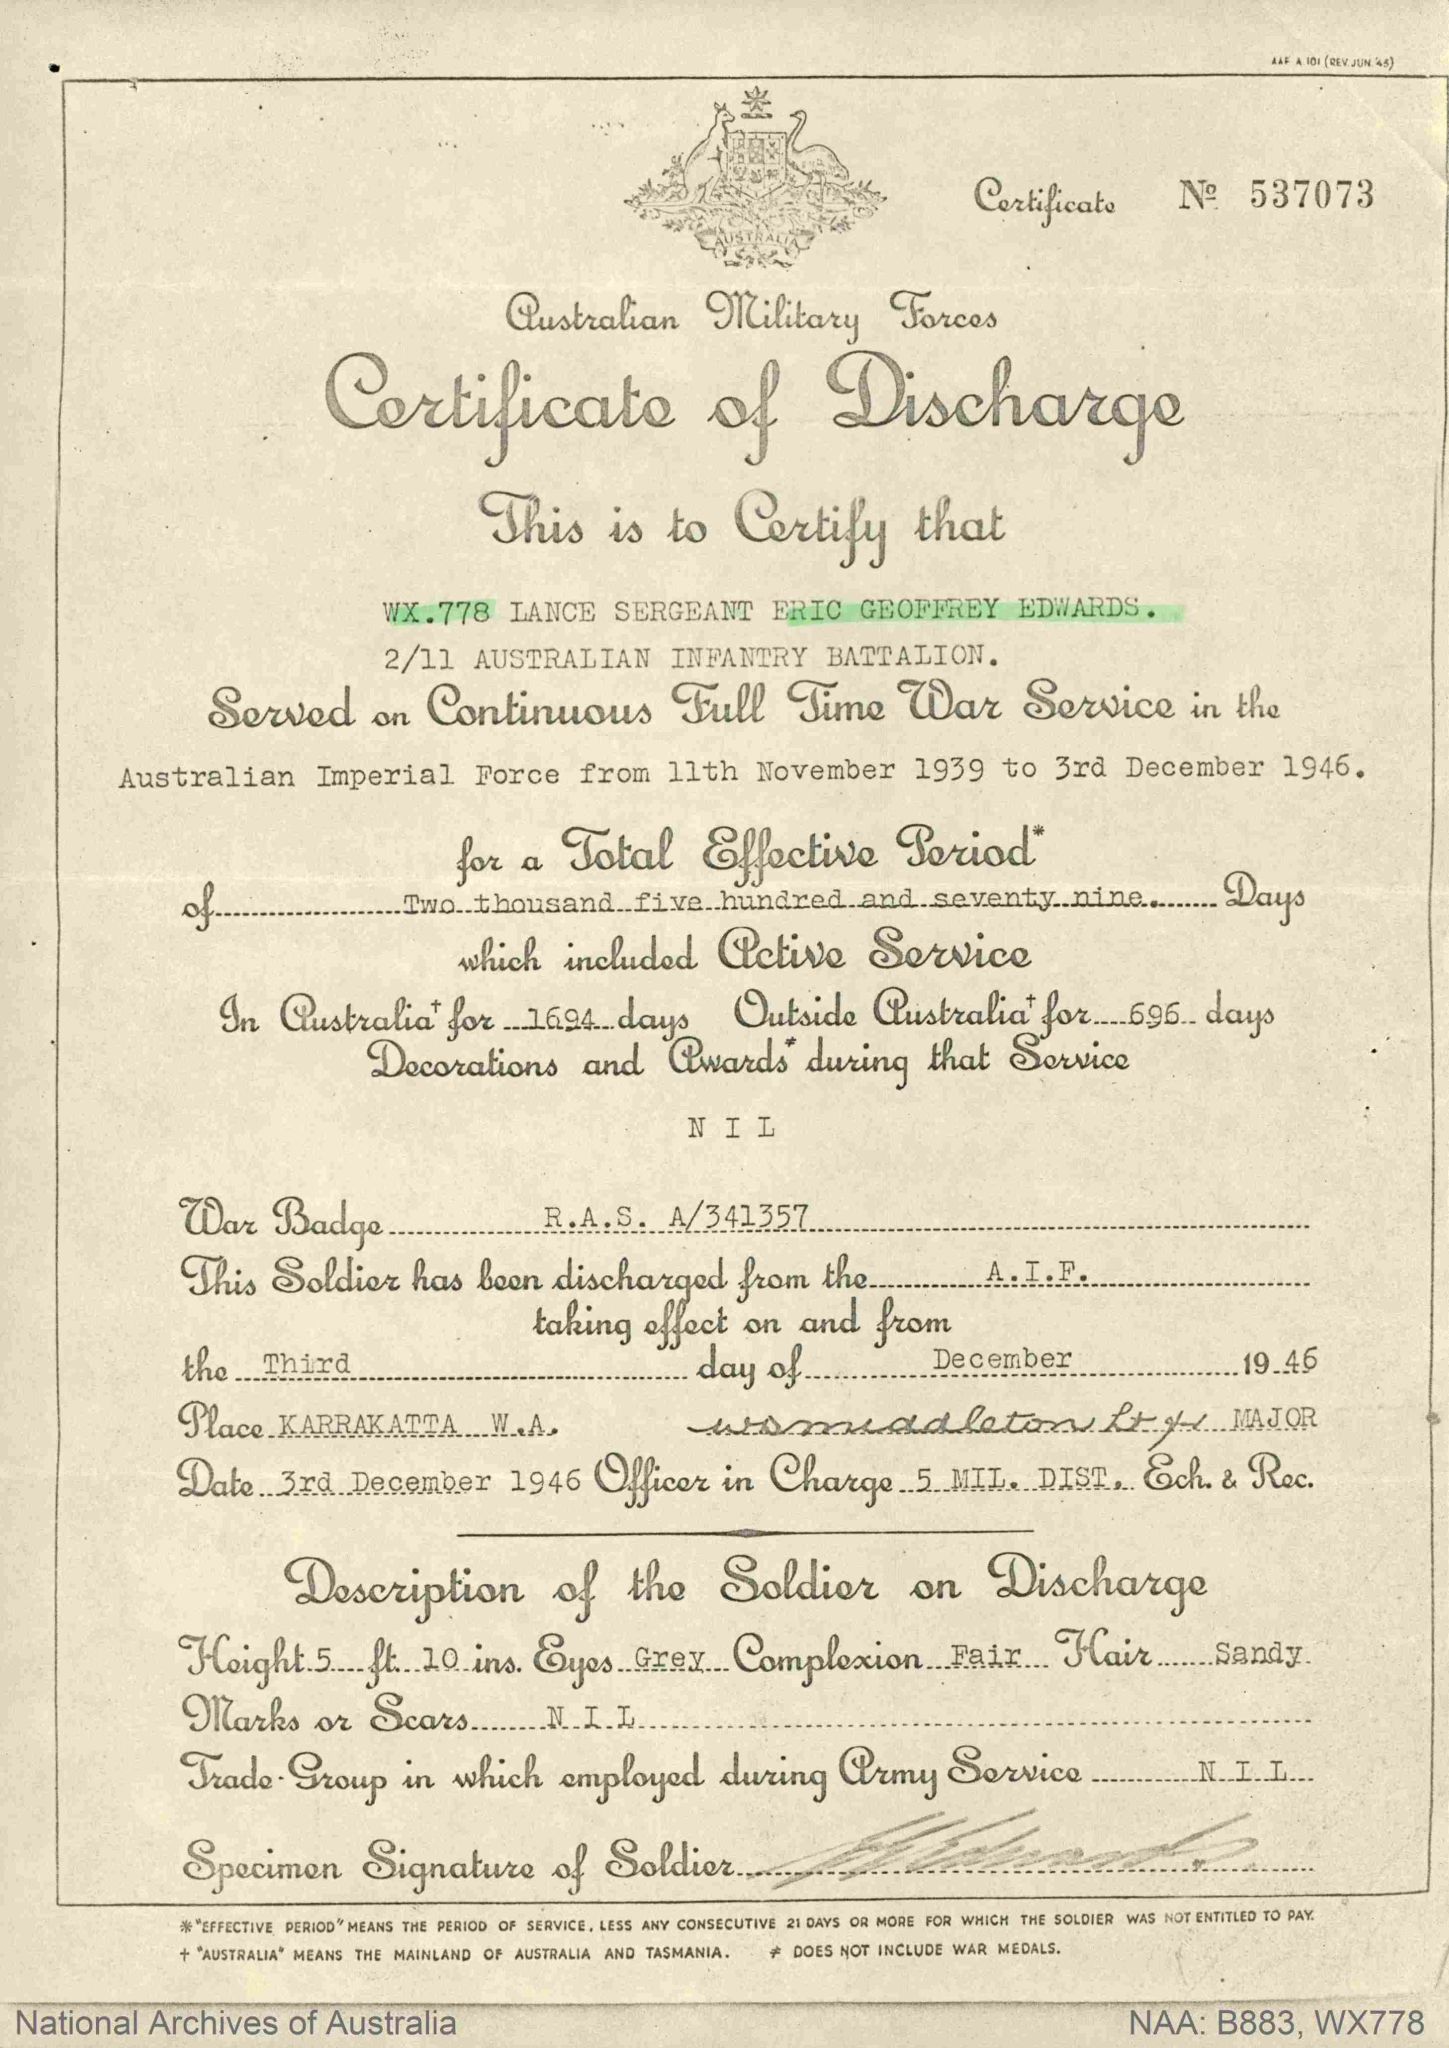 AAF A 101 (REV. JUN. '45)
AUSTRALIA
Certificate No 537073
Australian Military Forces
Certificate of Discharge
This is to Certify that
WX.778 LANCE SERGEANT ERIC GEOFFREY EDWARDS.
2/11 AUSTRALIAN INFANTRY BATTALION.
Served on Continuous Full Time War Service in the
Australian Imperial Force from 11th November 1939 to 3rd December 1946.
for a Total Effective Period*
of Two thousand five hundred and seventy nine. Days
which included Active Service
In Australia† for 1694 days Outside Australia† for 696 days
Decorations and Awards* during that Service
N I L
War Badge R.A.S. A/341357
This Soldier has been discharged from the A.I.F.
taking effect on and from
the Third day of December 1946
Place KARRAKATTA W.A. WSmiddleton Lt for MAJOR
Date 3rd December 1946 Officer in Charge 5 MIL. DIST. Ech. & Rec.
Description of the Soldier on Discharge
Height 5 ft. 10 ins. Eyes Grey Complexion Fair Hair Sandy
Marks or Scars N I L
Trade-Group in which employed during Army Service N I L
Specimen Signature of Soldier Edwards.
* "EFFECTIVE PERIOD" MEANS THE PERIOD OF SERVICE, LESS ANY CONSECUTIVE 21 DAYS OR MORE FOR WHICH THE SOLDIER WAS NOT ENTITLED TO PAY.
† "AUSTRALIA" MEANS THE MAINLAND OF AUSTRALIA AND TASMANIA. ≠ DOES NOT INCLUDE WAR MEDALS.
National Archives of Australia NAA: B883, WX778